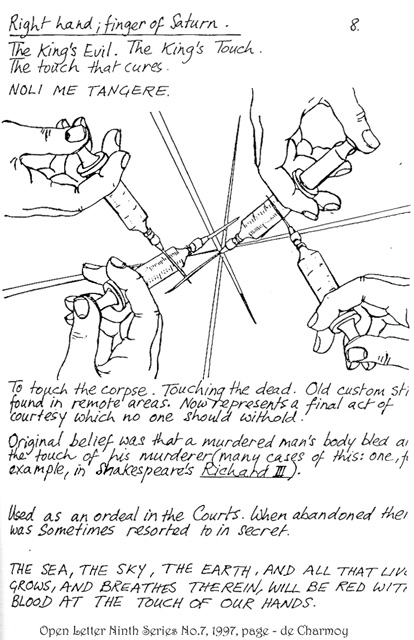 Right hand; finger of Saturn.
8.
The King's Evil. The King's Touch.
The touch that cures.
NOLI ME TANGERE.
To touch the corpse. Touching the dead. Old custom sti
found in remote areas. Now represents a final act of
courtesy which no one should withold.
Original belief was that a murdered man's body bled a
the touch of his murderer (many cases of this: one, f
example, in Shakespeare's Richard III).
Used as an ordeal in the Courts. When abandoned ther
was sometimes resorted to in secret.
THE SEA, THE SKY, THE EARTH, AND ALL THAT LIV
GROWS, AND BREATHES THEREIN, WILL BE RED WIT
BLOOD AT THE TOUCH OF OUR HANDS.
Open Letter Ninth Series No.7, 1997, page - de Charmoy